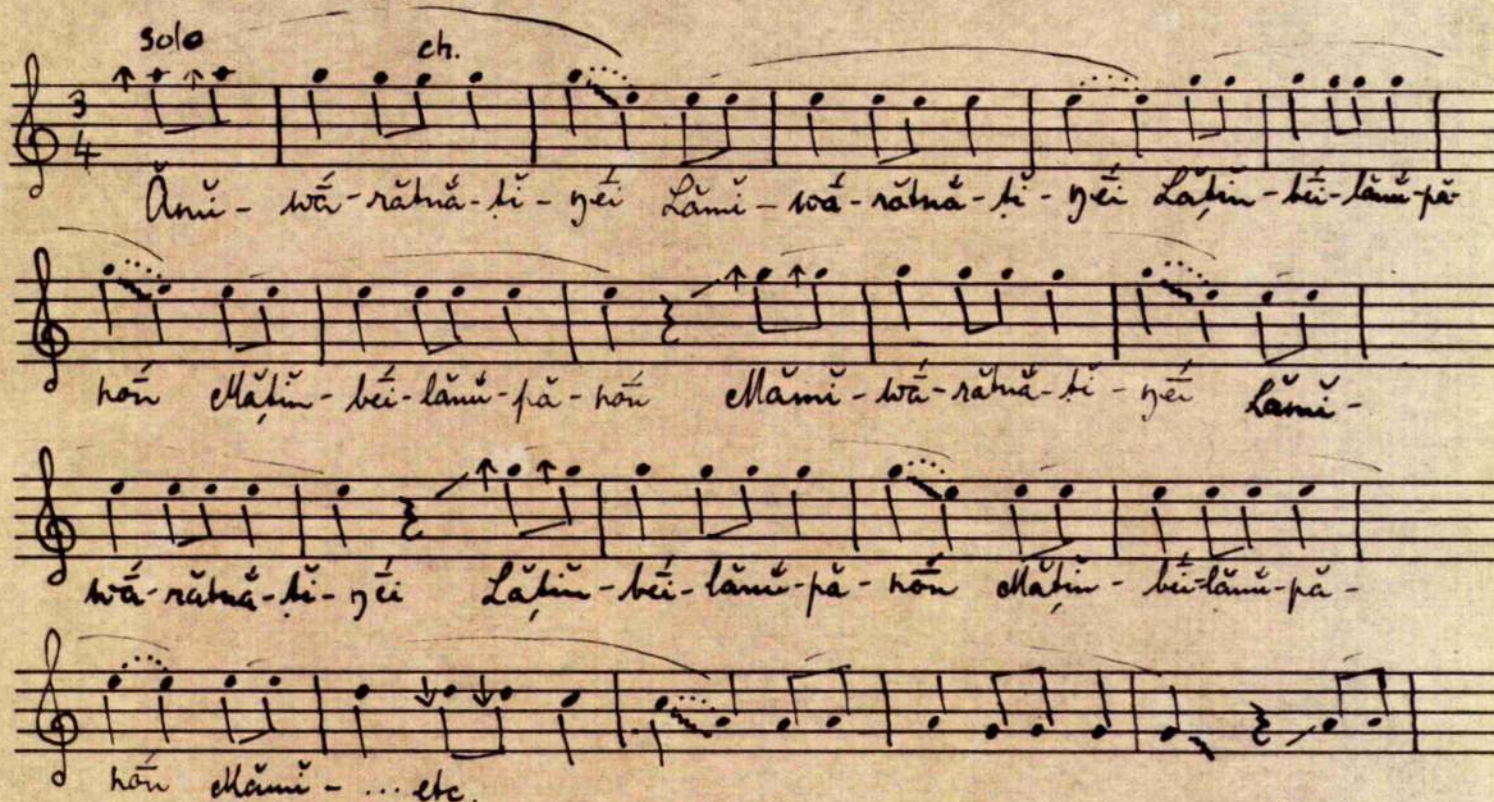 solo ch.
3
4
Ămĭ - wā́ - rătnắ - ṭi - ŋéi Lămĭ - wā́ - rătnắ - ṭi - ŋéi Lăṭĭn - béi - lănŭ - pă -
nṓn Măṭĭn - béi - lănŭ - pă - nṓn Mămĭ - wā́ - rătnắ - ṭi - ŋéi Lămĭ -
wā́ - rătnắ - ṭi - ŋéi Lăṭĭn - béi - lănŭ - pă - nṓn Măṭĭn - béi - lănŭ - pă -
nṓn Mămĭ - ... etc.